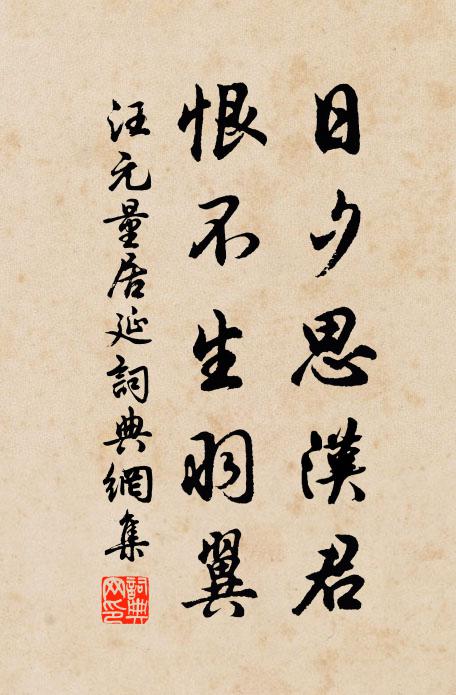 日夕思漢君
恨不生羽翼
汪元量居延詞典網集
詞典網印